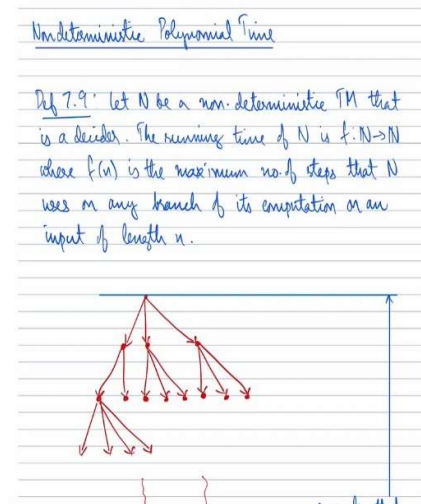 Nondeterministic Polynomial Time
Def 7.9: Let N be a non-deterministic TM that
is a decider. The running time of N is f: N→N
where f(n) is the maximum no. of steps that N
uses on any branch of its computation on an
input of length n.